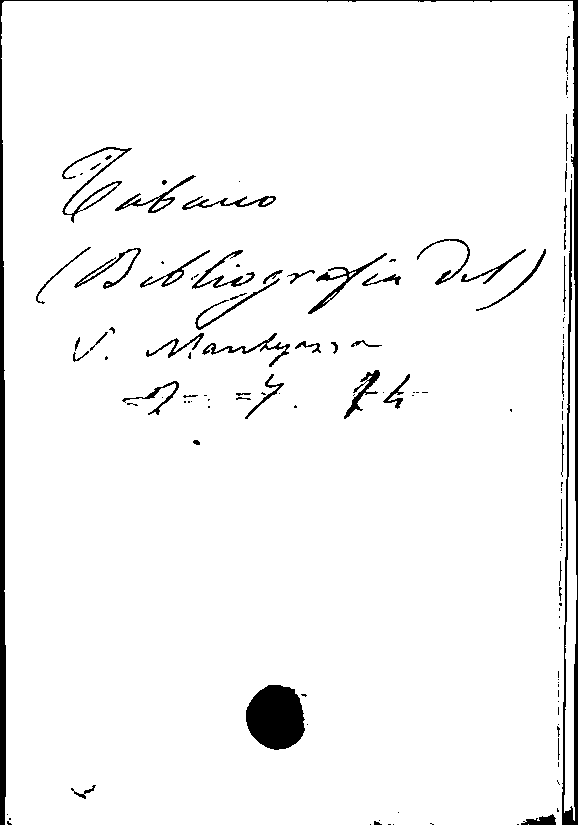 Tabacco
(Bibliografia del)
V. Mantegazza
2. 7. 74